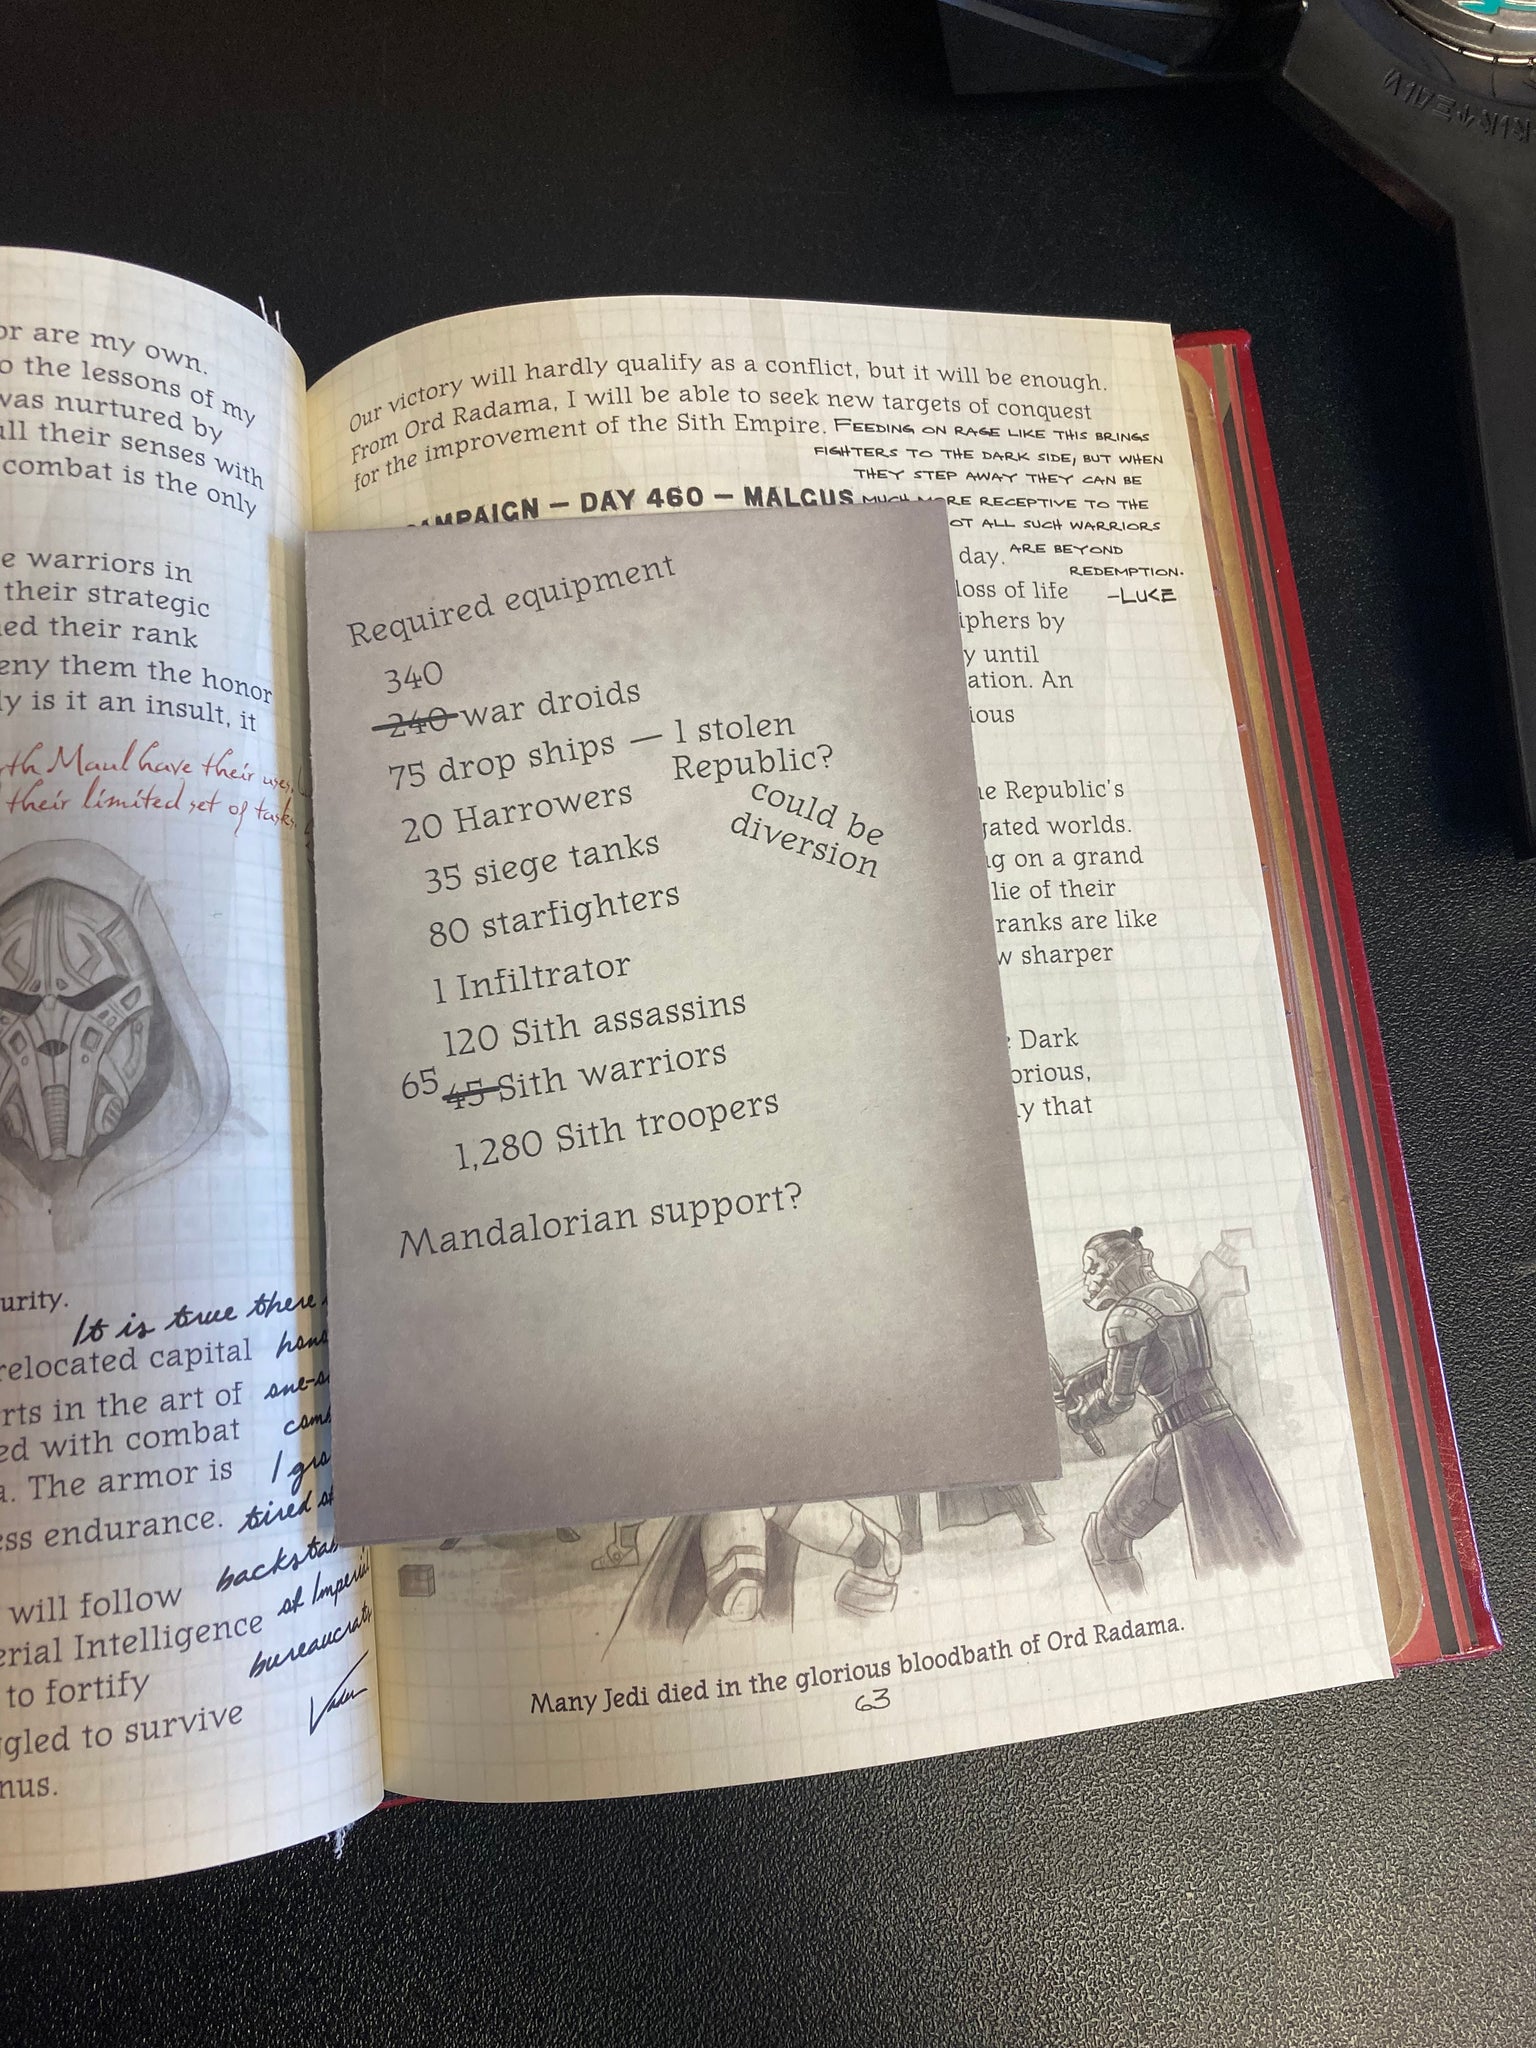 or are my own.
o the lessons of my
was nurtured by
ull their senses with
combat is the only
e warriors in
their strategic
ned their rank
eny them the honor
ly is it an insult, it
rth Maul have their uses,
their limited set of tasks.
urity.
It is true there
relocated capital
rts in the art of one-
ed with combat
a. The armor is I
ess endurance. tired
will follow
erial Intelligence of
to fortify
ggled to survive
Vader
nus.
Our victory will hardly qualify as a conflict, but it will be enough.
From Ord Radama, I will be able to seek new targets of conquest
for the improvement of the Sith Empire. FEEDING ON RAGE LIKE THIS BRINGS
FIGHTERS TO THE DARK SIDE, BUT WHEN
THEY STEP AWAY THEY CAN BE
CAMPAIGN — DAY 460 — MALGUS MUCH MORE RECEPTIVE TO THE
OT ALL SUCH WARRIORS
day. ARE BEYOND
REDEMPTION.
loss of life -LUKE
iphers by
y until
ation. An
ious
Required equipment
340
240 war droids
75 drop ships — 1 stolen
Republic?
could be
diversion
20 Harrowers
35 siege tanks
80 starfighters
1 Infiltrator
120 Sith assassins
65 45 Sith warriors
1,280 Sith troopers
Mandalorian support?
e Republic's
gated worlds.
ng on a grand
lie of their
ranks are like
w sharper
Dark
orious,
y that
Many Jedi died in the glorious bloodbath of Ord Radama.
63